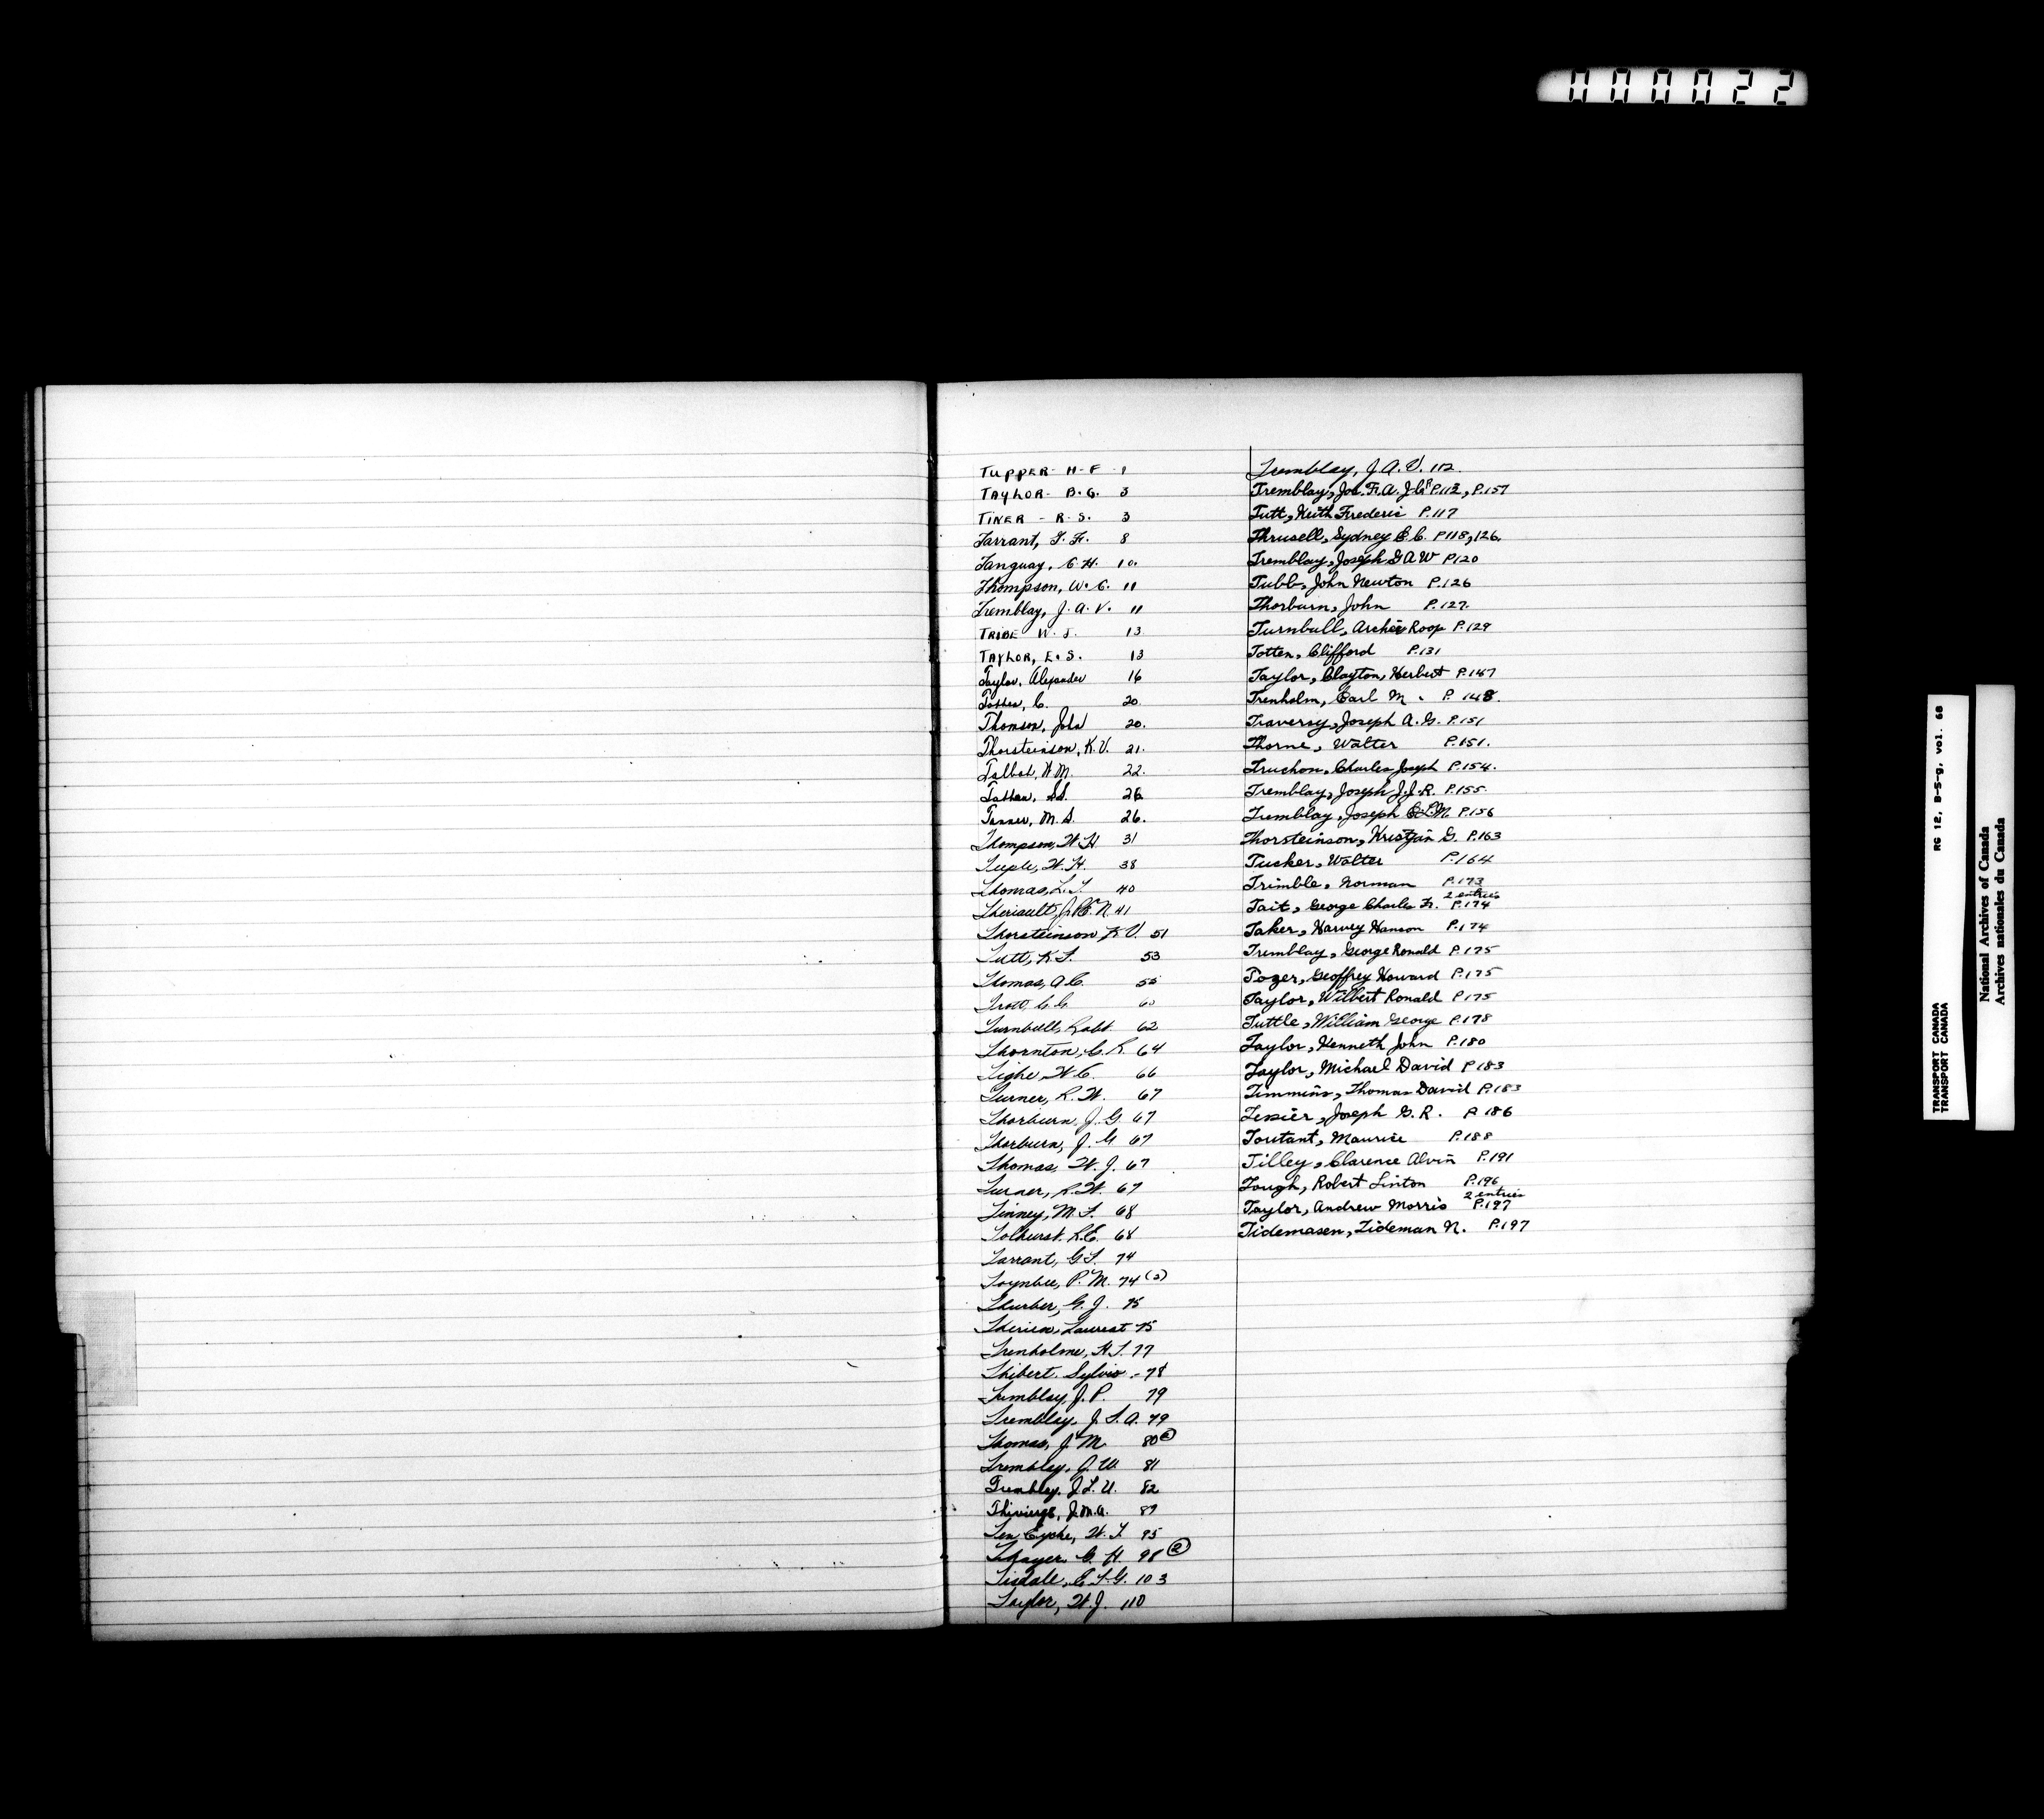 000022
TUPPER - H - F - 1
TAYLOR - B. G. 3
TINER - R. S. 3
Tarrant, G. F. 8
Tanguay, C. H. 10.
Thompson, W. C. 11
Tremblay, J. A. V. 11
TRIBE W. J. 13
TAYLOR, E. S. 13
Taylor, Alexander 16
20
Thomson, John 20.
Thorsteinson, K. V. 21.
Talbot, H. M. 22.
26
Tanner, M. S. 26.
Thompson, W. H. 31
Teeple, W. H. 38
Thomas, L. T. 40
Theriault, J. N. 41
Thorsteinson, K V. 51
Tutt, K F. 53
Thomas, A C. 55
Trott, C. C. 60
Turnbull, Robt. 62
Thornton, C. R. 64
Tighe, W. C. 66
Turner, R. W. 67
Thorburn, J. G. 67
Thorburn, J. G 67
Thomas, W. J. 67
Turner, R. W. 67
Tinney, M. F. 68
Tolhurst. R. E. 68
Tarrant, G. F. 74
Toynbee, P. M. 74 (2)
Thurber, G. J. 75
Therien, Laurent 75
Trenholme, H. T. 77
Thibert. Sylvio - 78
Tremblay, J. P. 79
Tremblay, J. T. A. 79
Thomas, J. M. 80 (2)
Tremblay, J. W. 81
Tremblay. J. L. U. 82
Thivierge, J. M. A. 89
Ten Eycke, W. T. 95
Thayer, C. H. 98 (2)
Tisdale, E. F. G. 103
Taylor, W. J. 110
Tremblay, J. A. V. 112.
Tremblay, Jos. F. A. P.113, P.157
Tutt, Keith Frederic P.117
Thrusell, Sydney E. C. P118, 126.
Tremblay, Joseph G A W P120
Tubb, John Newton P.126
Thorburn, John P.127.
Turnbull, Archie Roop P.129
Totten, Clifford P.131
Taylor, Clayton, Herbert P.147
Trenholm, Carl M. P. 148.
Traversy, Joseph A. G. P.151
Thorne, Walter P.151.
Truchon, Charles Joseph P.154.
Tremblay, Joseph J. J. R. P.155.
Tremblay, Joseph E. L. M. P.156
Thorsteinson, Kristján G. P.163
Tucker, Walter P.164
Trimble, Norman P.173
2 entries
Tait, George Charles Fr. P.174
Taker, Harvey Hanson P.174
Tremblay, George Ronald P.175
Tozer, Geoffrey Howard P.175
Taylor, Wilbert Ronald P.175
Tuttle, William George P.178
Taylor, Kenneth John P.180
Taylor, Michael David P.183
Timmins, Thomas David P.183
Tessier, Joseph G. R. P. 186
Toutant, Maurice P.188
Tilley, Clarence Alvin P.191
Tough, Robert Linton P.196
2 entries
Taylor, Andrew Morris P.197
Tidemasen, Tideman N. P.197
TRANSPORT CANADA RG 12, B-5-g, vol. 68
TRANSPORT CANADA
National Archives of Canada
Archives nationales du Canada